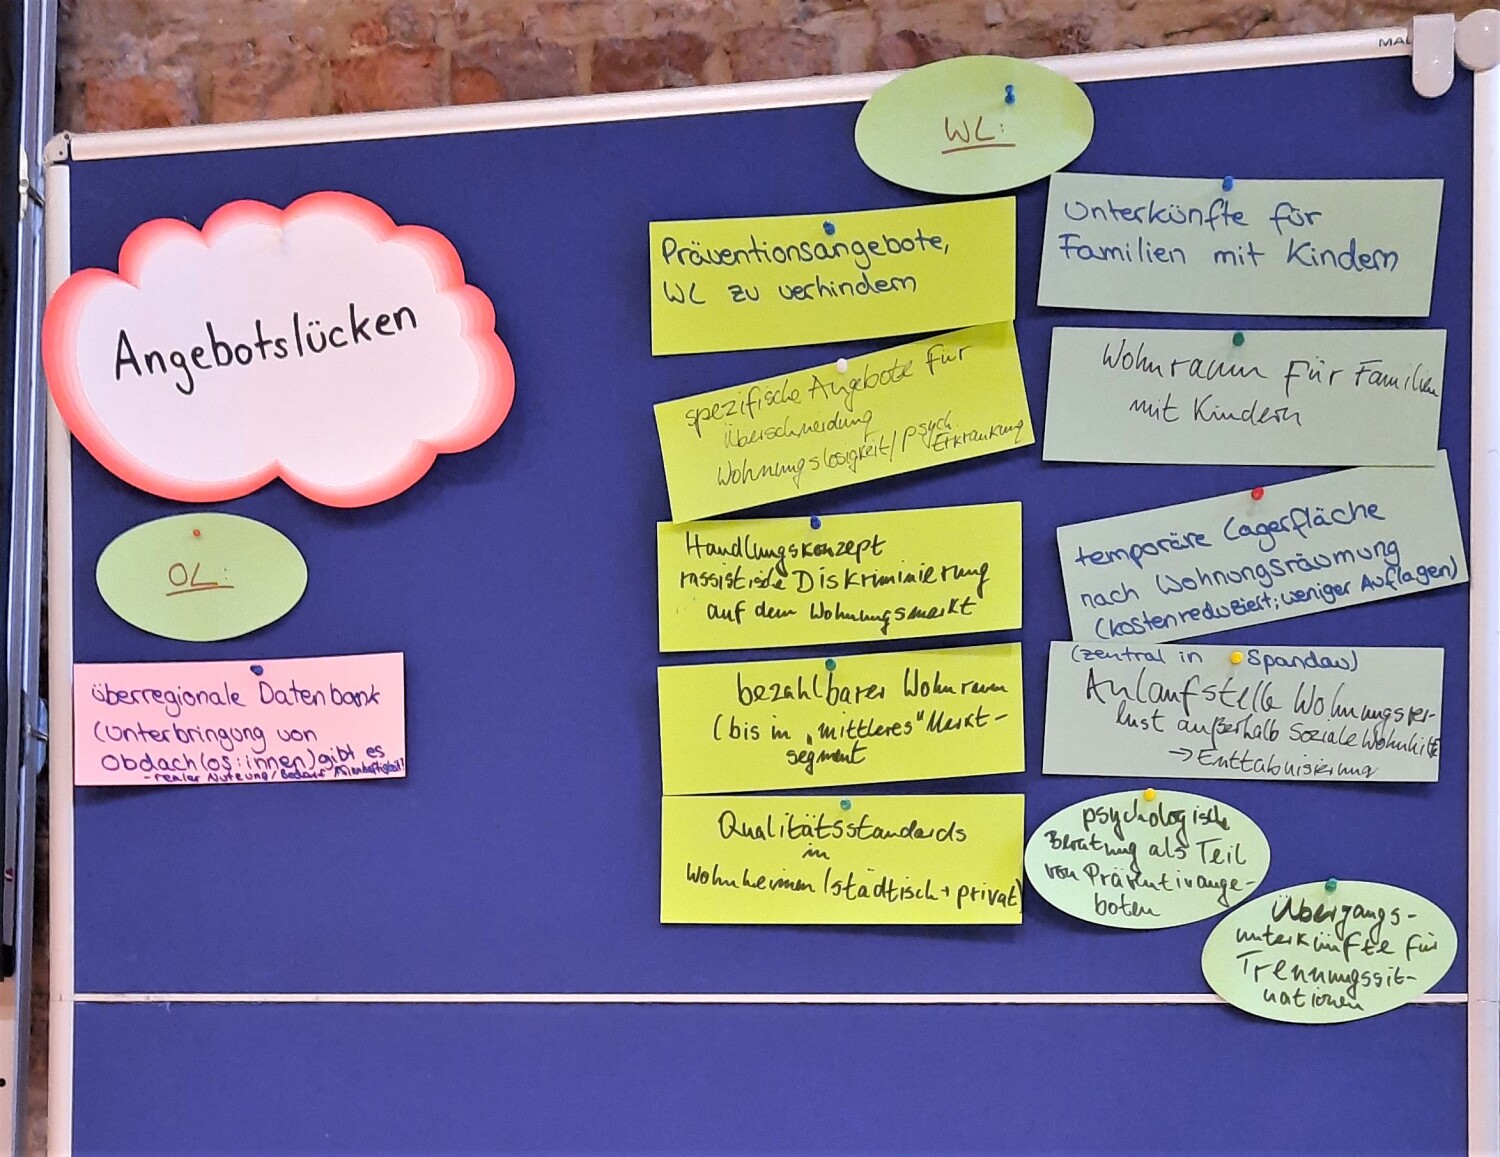 MAU
Angebotslücken
OL:
überregionale Datenbank
(Unterbringung von
Obdachlos:innen) gibt es
- realer Nutzung / Bedarf
WL:
Präventionsangebote,
WL zu verhindern
spezifische Angebote für
Überschneidung
Wohnungslosigkeit/psych.
Erkrankung
Handlungskonzept
rassistische Diskriminierung
auf dem Wohnungsmarkt
bezahlbarer Wohnraum
(bis in „mittleres" Markt-
segment
Qualitätsstandards
in
Wohnheimen (städtisch + privat)
Unterkünfte für
Familien mit Kindern
Wohnraum für Familien
mit Kindern
temporäre Lagerfläche
nach Wohnungsräumung
(kostenreduziert; weniger Auflagen)
(zentral in Spandau)
Anlaufstelle Wohnungsver-
lust außerhalb Soziale Wohnhilfe
→ Enttabuisierung
psychologische
Beratung als Teil
von Präventivange-
boten
Übergangs-
unterkünfte für
Trennungssit-
uationen